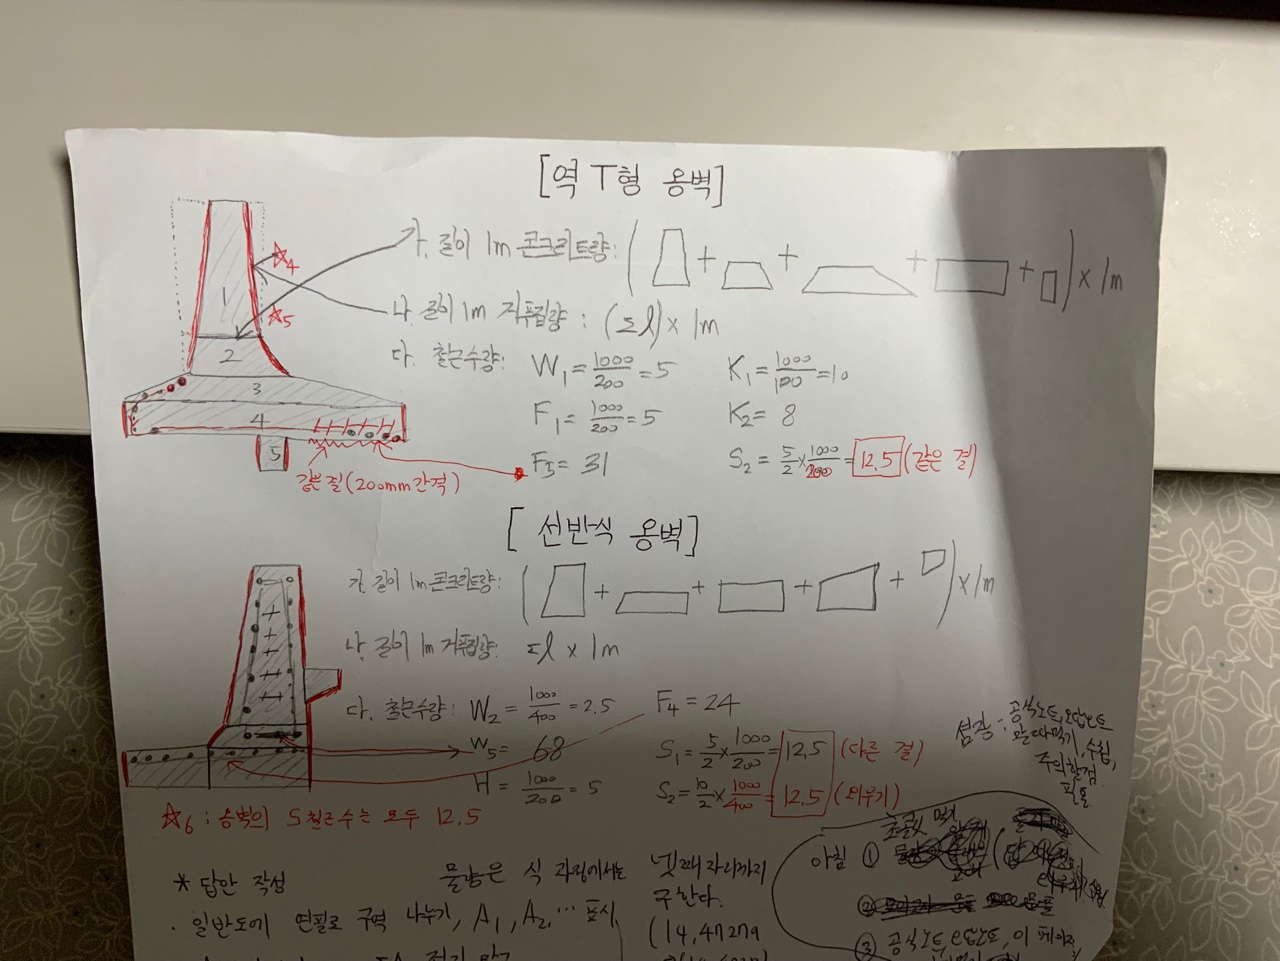 [역 T형 옹벽]
가. 길이 1m 콘크리트량: ( + + + + ) x 1m
나. 길이 1m 거푸집량 : (Σl) x 1m
다. 철근수량: W1 = 1000/200 = 5 K1 = 1000/100 = 10
F1 = 1000/200 = 5 K2 = 8
F5 = 31 S2 = 5/2 x 1000/200 = 12.5 (같은 결)
☆4
☆5
1
2
3
4
5
(200mm간격)
[선반식 옹벽]
가. 길이 1m 콘크리트량: ( + + + + ) x 1m
나. 길이 1m 거푸집량: Σl x 1m
다. 철근수량: W2 = 1000/400 = 2.5 F4 = 24
W5 = 68 S1 = 5/2 x 1000/200 = 12.5 (다른 결)
H = 1000/200 = 5 S2 = 10/2 x 1000/400 = 12.5 (외우기)
☆6 : 옹벽의 S철근수는 모두 12.5
공식노트, 오답노트
주의할점
필통
* 답안 작성
· 일반도에 연필로 구역 나누기, A1, A2, … 표시
물량은 식 과정에서는 넷째자리까지
구한다.
(14,4729
아침 ①
②
③ 공식노트, 오답노트, 이 페이지,